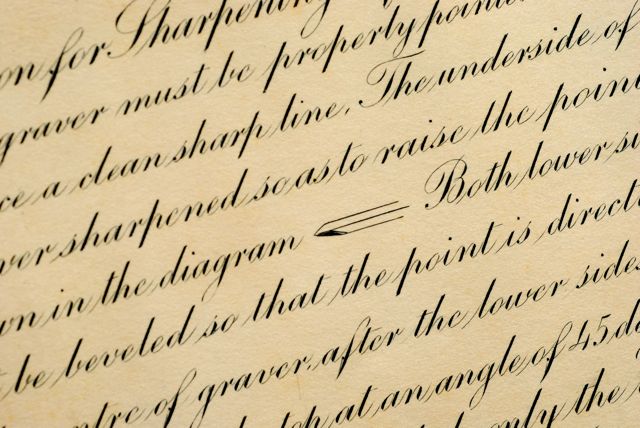 on for Sharpening
graver must be properly pointe
ce a clean sharp line. The underside of
ver sharpened so as to raise the poin
wn in the diagram Both lower si
be beveled so that the point is direct
ntre of graver, after the lower sides
at an angle of 45 de
only the